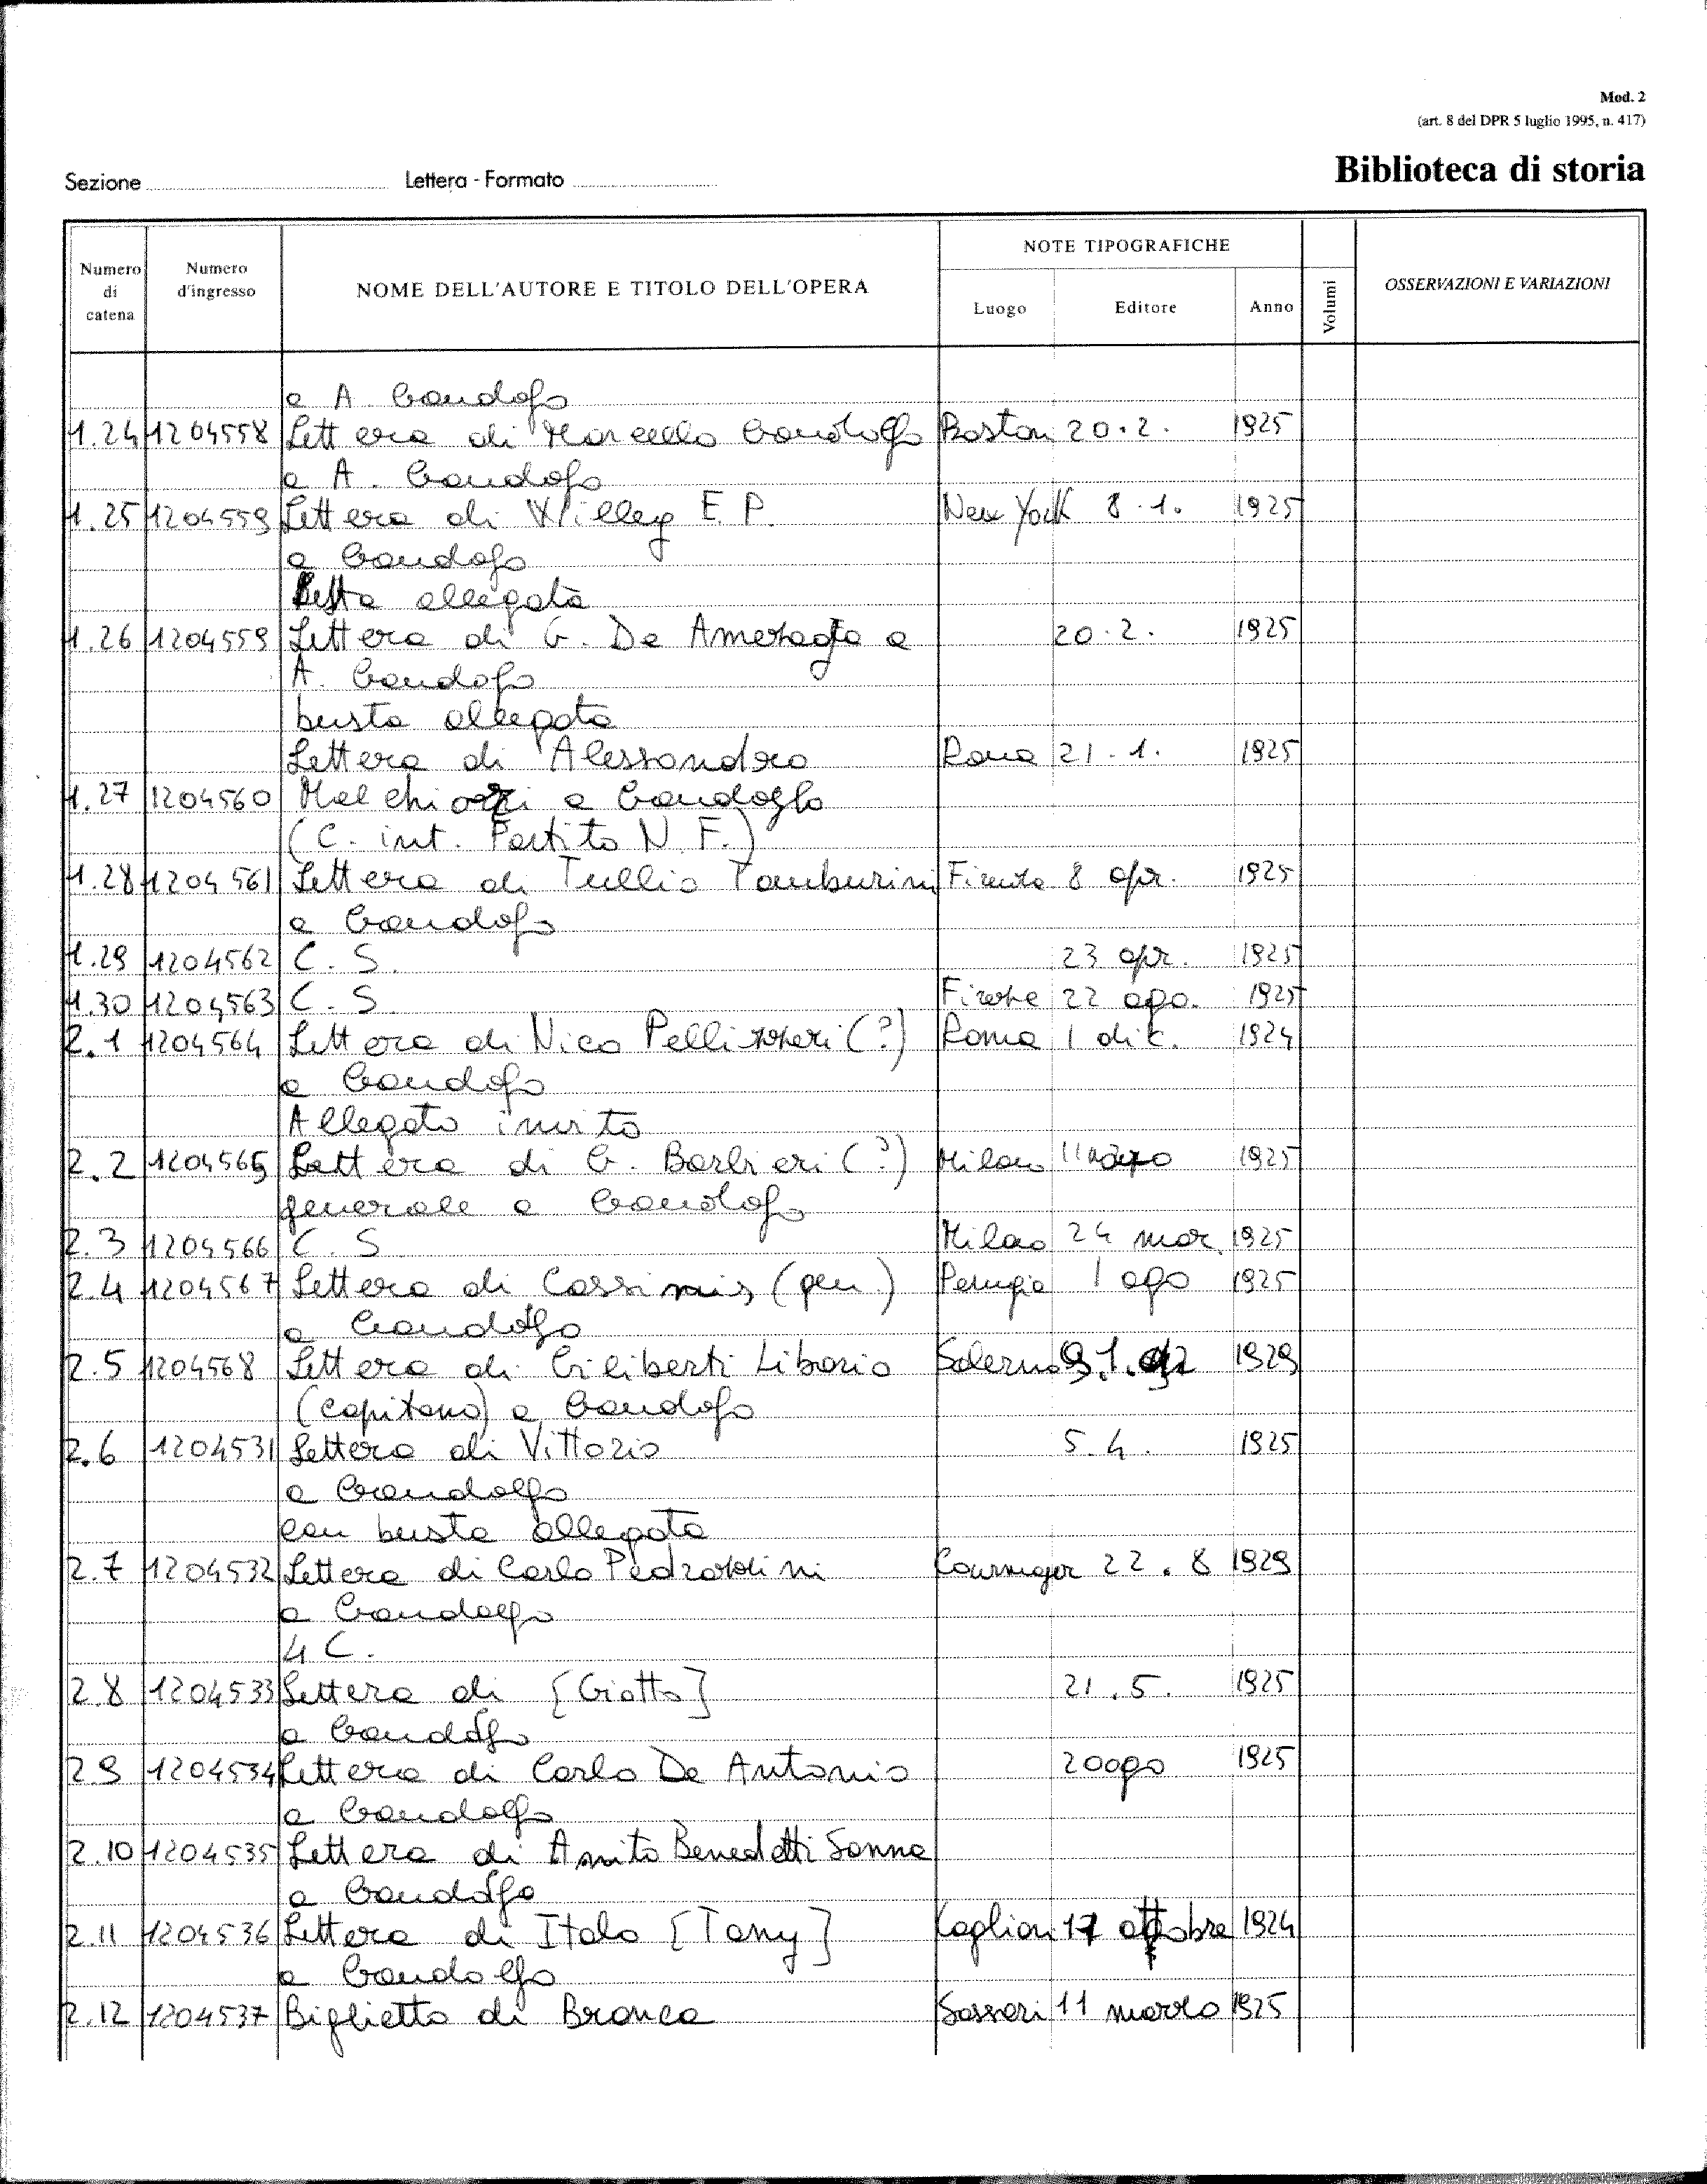 Mod. 2
(art. 8 del DPR 5 luglio 1995, n. 417)
Biblioteca di storia
Sezione Lettera - Formato
Numero di catena Numero d'ingresso NOME DELL'AUTORE E TITOLO DELL'OPERA NOTE TIPOGRAFICHE Luogo Editore Anno Volumi OSSERVAZIONI E VARIAZIONI
a A. Gandolfo
1.24 1204558 Lettera di Marcello Gandolfo Boston 20.2. 1925
a A. Gandolfo
1.25 1204559 Lettera di Willey E. P. New York 8.1. 1925
a Gandolfo
Busta allegata
1.26 1204559 Lettera di G. De a 20.2. 1925
A. Gandolfo
busta allegata
Lettera di Alessandro Roma 21.1. 1925
1.27 1204560 Melchiorri a Gandolfo
(C. int. Partito N. F.)
1.28 1204561 Lettera di Tullio Tamburini Firenze 8 apr. 1925
a Gandolfo
1.29 1204562 C. S. 23 apr. 1925
1.30 1204563 C. S. Firenze 22 ago. 1925
2.1 1204564 Lettera di Nico Pellizzeri (?) Roma 1 dic. 1924
a Gandolfo
Allegato invito
2.2 1204565 Lettera di G. Barbieri (?) Milano 1925
generale a Gandolfo
2.3 1204566 C. S. Milano 24 mar. 1925
2.4 1204567 Lettera di Cassinis (gen.) Perugia 1 ago 1925
a Gandolfo
2.5 1204568 Lettera di Ciliberti Liborio Salerno 1929
(capitano) a Gandolfo
2.6 1204531 Lettera di Vittorio 5.4. 1925
a Gandolfo
con busta allegata
2.7 1204532 Lettera di Carlo Pedrazzini 22.8 1929
a Gandolfo
4 C.
2.8 1204533 Lettera di [Giotto] 21.5. 1925
a Gandolfo
2.9 1204534 Lettera di Carlo De Antonio 20 ago 1925
a Gandolfo
2.10 1204535 Lettera di Benedetti Sanna
a Gandolfo
2.11 1204536 Lettera di Italo [Tany] Cagliari 17 ottobre 1924
a Gandolfo
2.12 1204537 Biglietto di Branca Sassari 11 marzo 1925